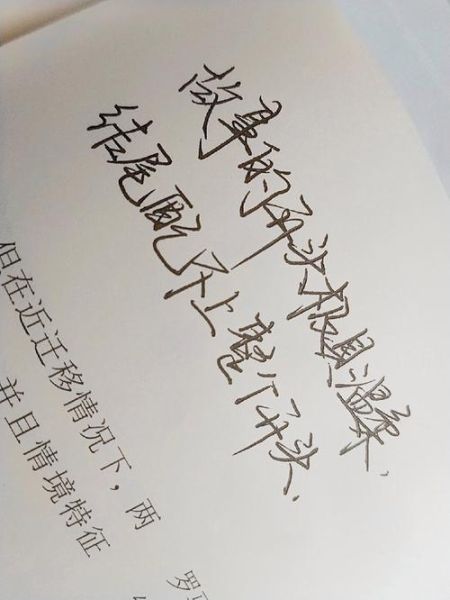 故事的开头极具温柔，
结尾配不上整个开头、
但在近迁移情况下，两
并且情境特征
罗